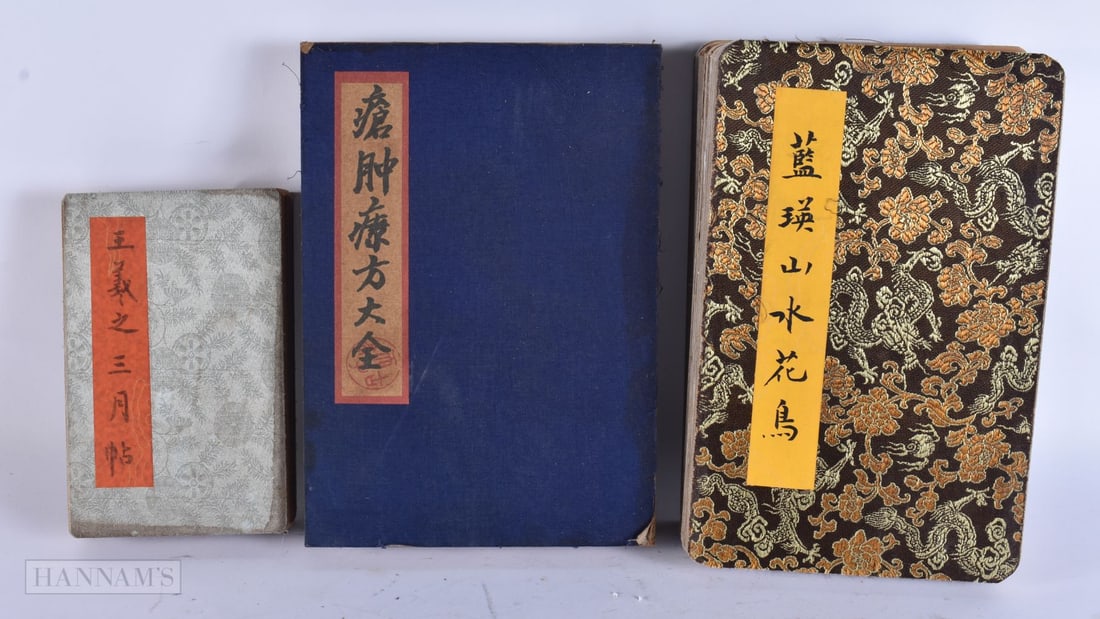 王羲之三月帖
瘡肿療方大全
藍瑛山水花鳥
HANNAM'S